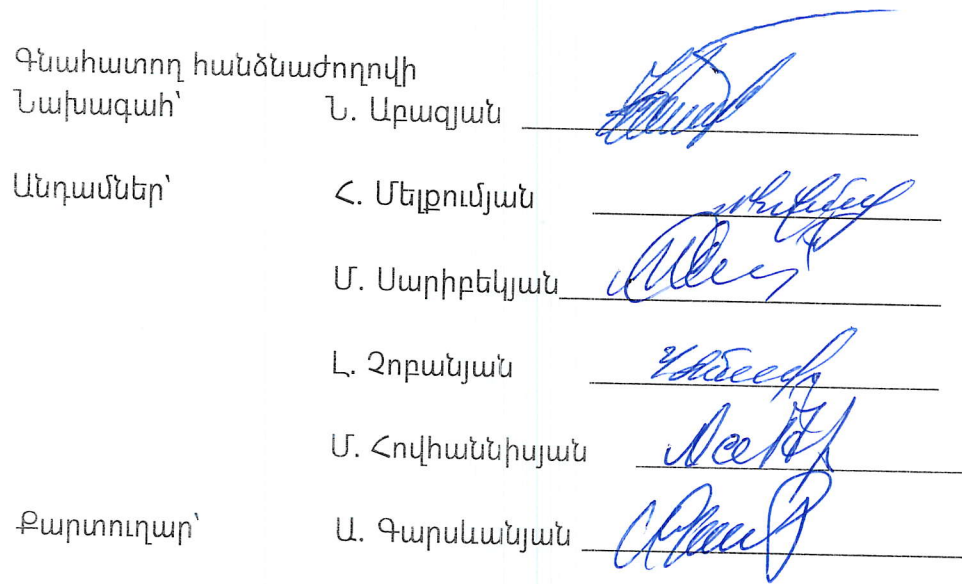 Գնահատող հանձնաժողովի
Նախագահ՝ Ն. Աբազյան
Անդամներ՝ Հ. Մելքումյան
Մ. Սարիբեկյան
Լ. Չոբանյան
Մ. Հովհաննիսյան
Քարտուղար՝ Ա. Գարսևանյան